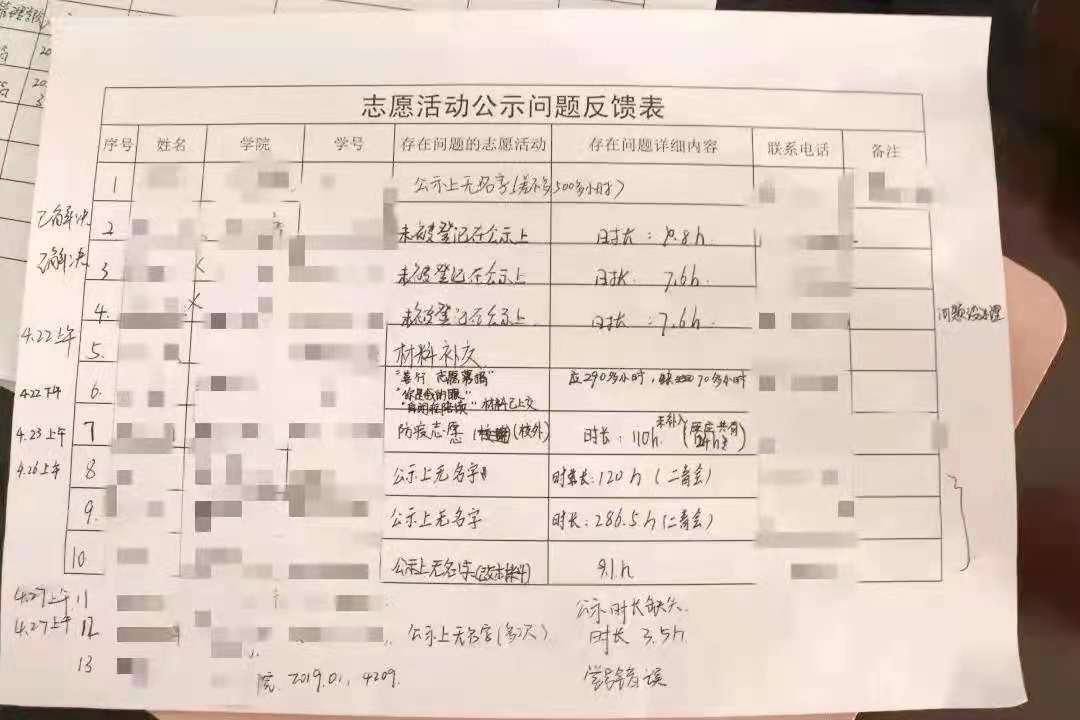 志愿活动公示问题反馈表
序号 姓名 学院 学号 存在问题的志愿活动 存在问题详细内容 联系电话 备注
1 公示上无名字(差不多500多小时)
已解决 2 未被登记在公示上 时长: 9.8h.
已解决 3 未被登记在公示上 时长: 7.6h.
4. 未被登记在公示上 时长: 7.6h.
4.22上午 5. 材料补交
4.22下午 6. "善行 志愿
"你是我的眼"
材料已上交 应290多小时,缺 70多小时
4.23上午 7 防疫志愿 (校外) 时长: 110h. 未补入
4.26上午 8 公示上无名字 时长: 120h (二青会)
9. 公示上无名字 时长: 286.5h (二青会)
10 公示上无名字 9.1h
4.27上午 11 公示时长缺失.
4.27上午 12 公示上无名字(多次) 时长 3.5h
13 院. 2019.01, 4209. 学号错误